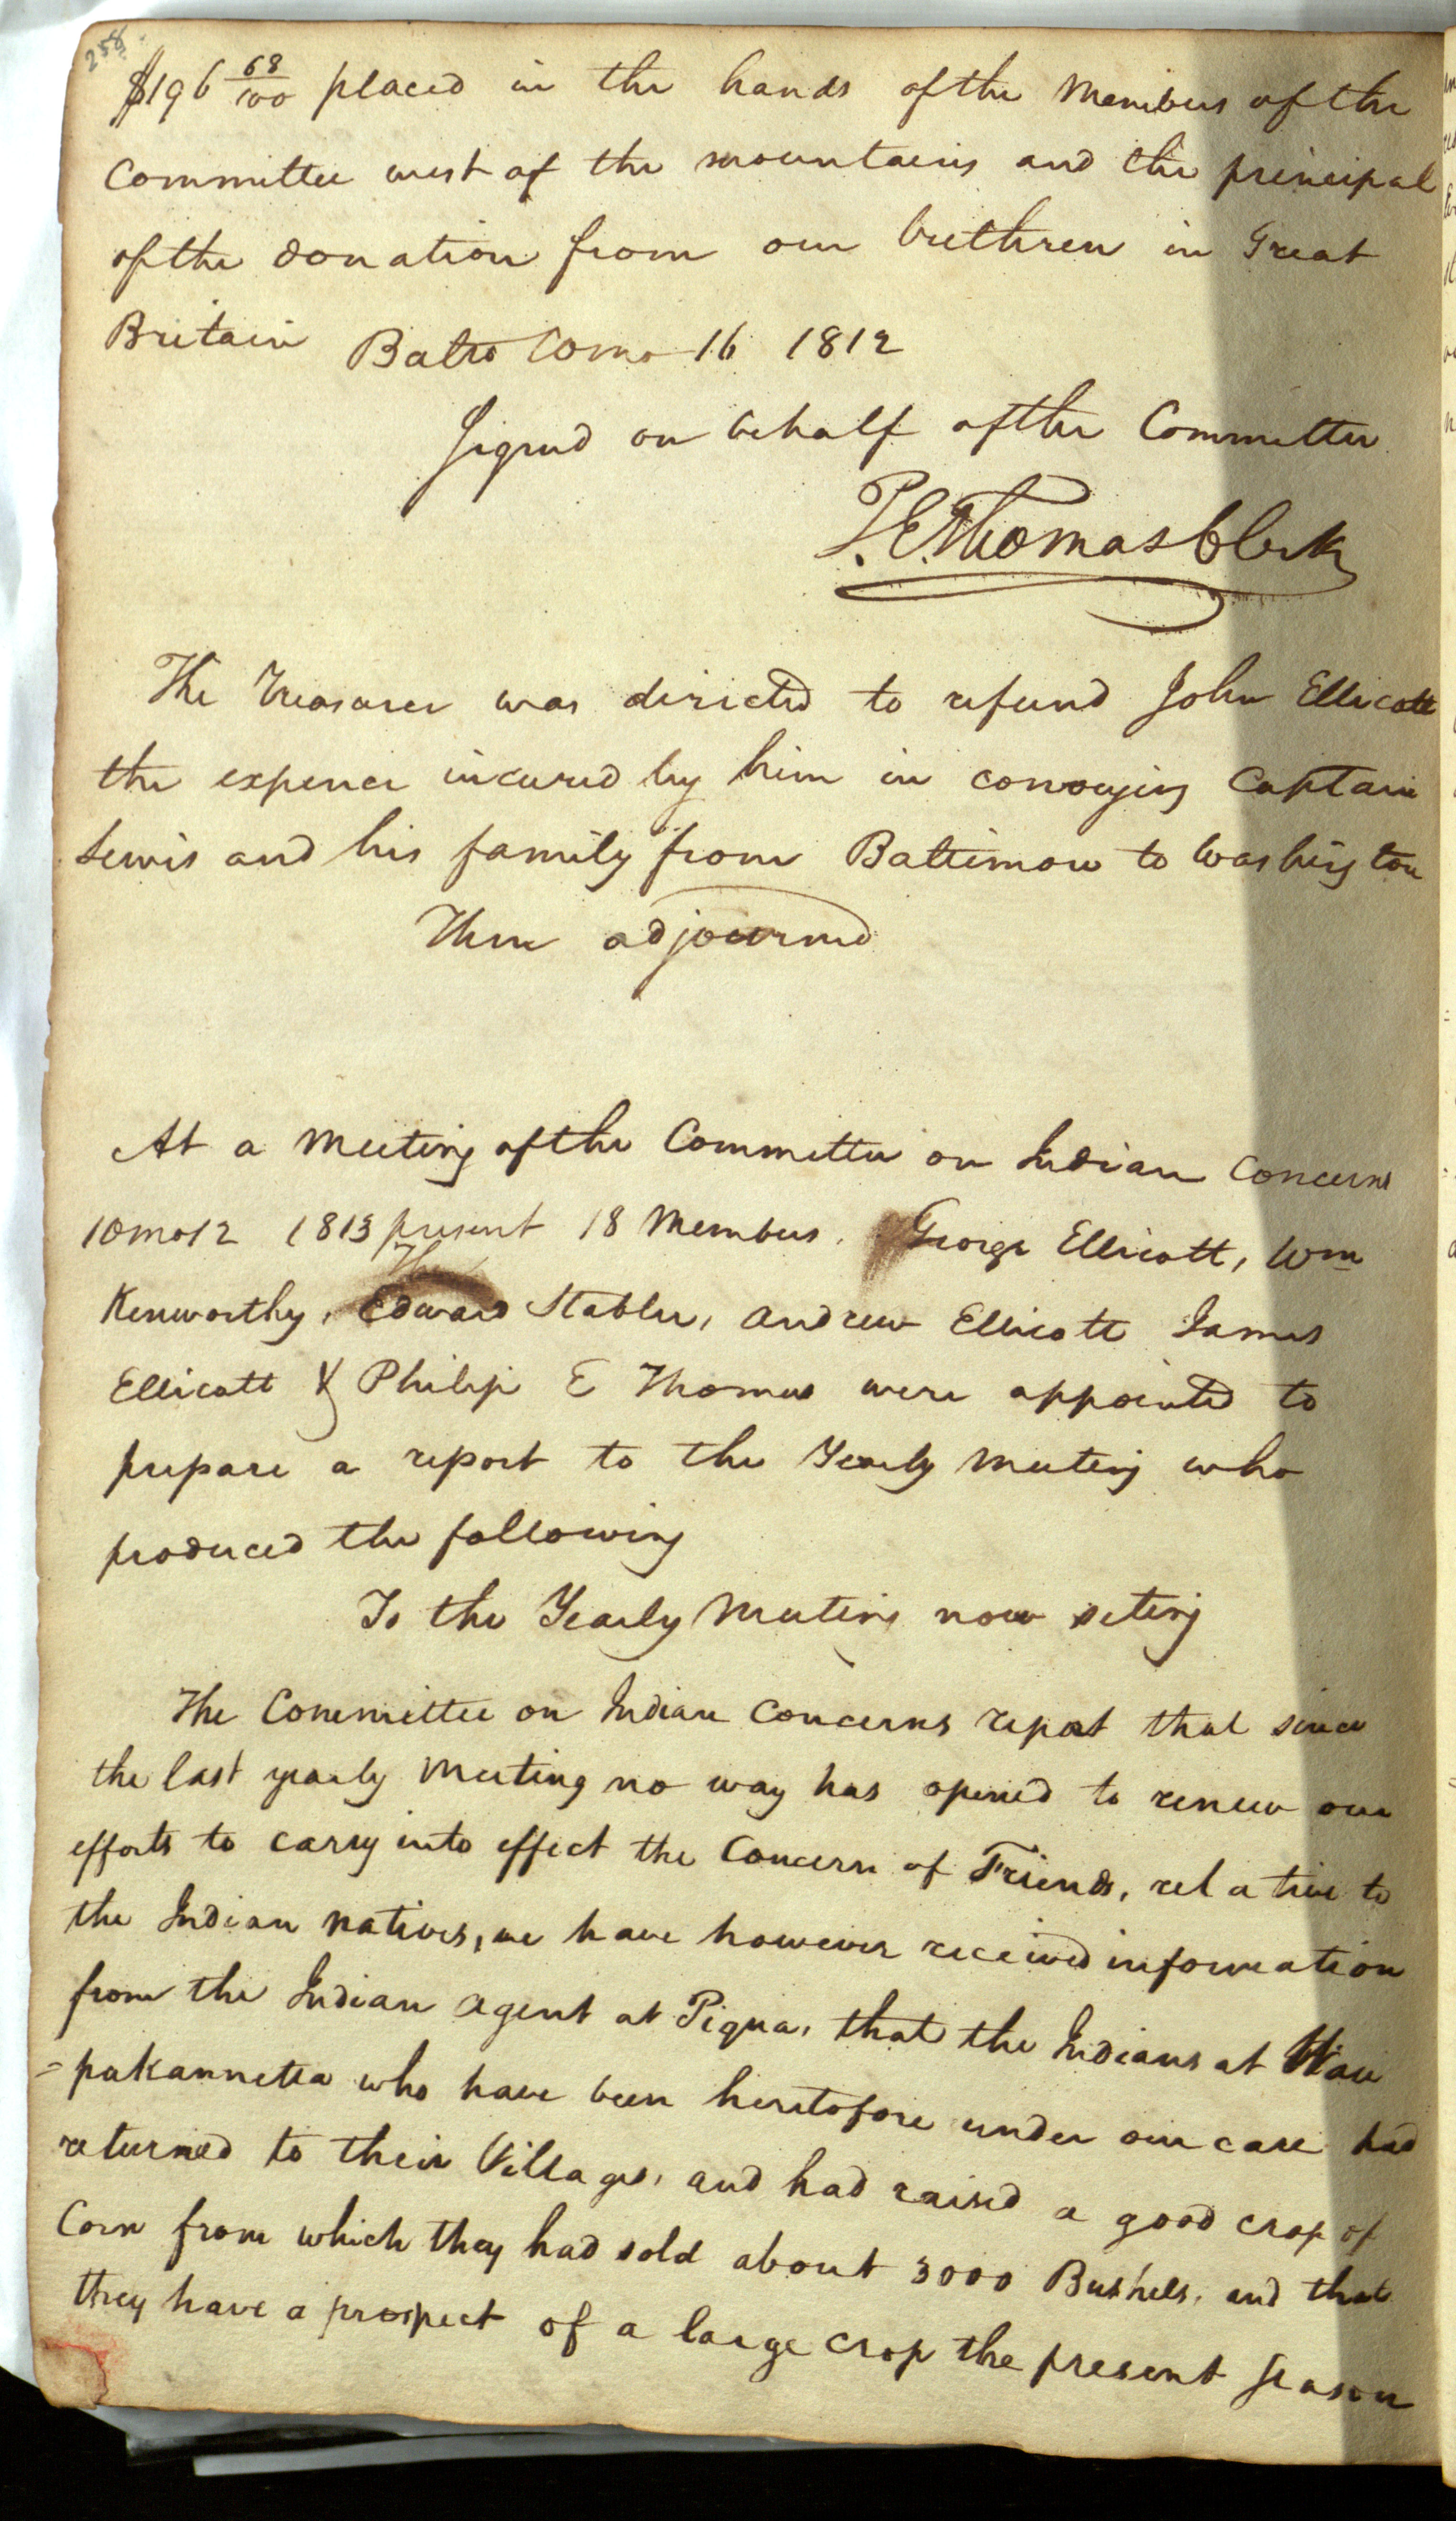 258.
$196 68/100 placed in the hands of the Members of the
Committee west of the mountains and the principal
of the donation from our brethren in Great
Britain Balto 10mo 16 1812
Signed on behalf of the Committee
P. E. Thomas Clerk
The Treasurer was directed to refund John Ellicott
the expence incured by him in conveying Captain
Lewis and his family from Baltimore to Washington
Then adjourned
At a Meeting of the Committee on Indian Concerns
10mo 12 1813 present 18 Members. George Ellicott, Wm
Kenworthy, Edward Stabler, Andrew Ellicott James
Ellicott & Philip E Thomas were appointed to
prepare a report to the Yearly Meeting who
produced the following
To the Yearly Meeting now seting
The Committee on Indian Concerns report that since
the last yearly Meeting no way has opened to renew our
efforts to carry into effect the Concern of Friends, relative to
the Indian natives, we have however received information
from the Indian Agent at Piqua, that the Indians at Wau
=pakannetta who have been heretofore under our care had
returned to their Villages, and had raised a good crop of
Corn from which they had sold about 3000 Bushels, and that
they have a prospect of a large crop the present season